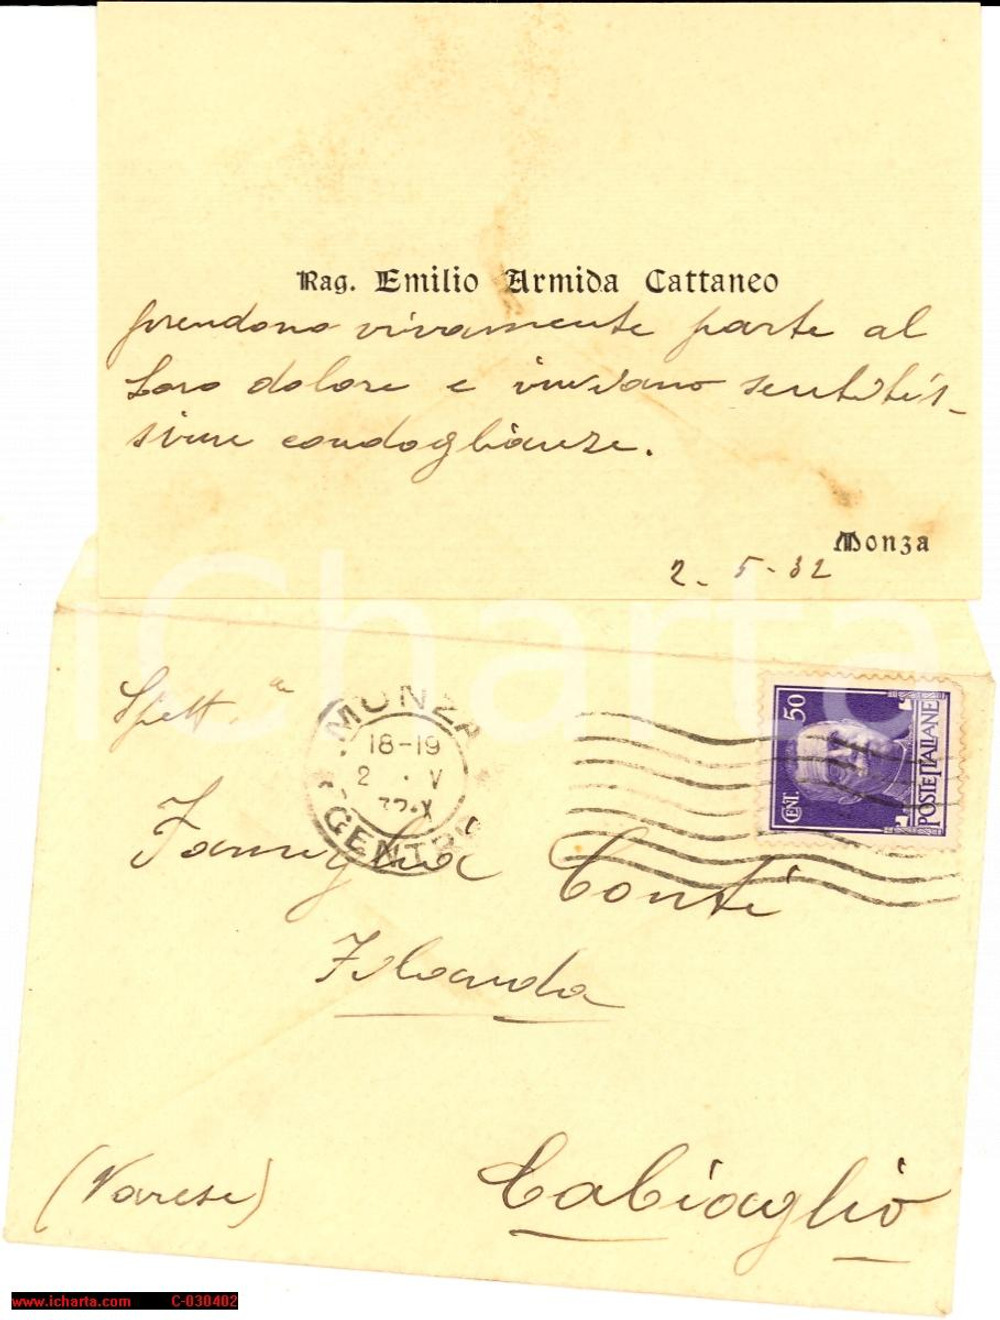 Rag. Emilio Armida Cattaneo
prendono vivamente parte al
Loro dolore e inviano sentitis-
sime condoglianze.
Monza
2-5-32
iCharta
Spett.a
MONZA
18-19
2 · V
32·X
CENTRO
CENT. 50
POSTE ITALIANE
Famiglia Conti
Filanda
(Varese)
Cabiaglio
www.icharta.com C-030402